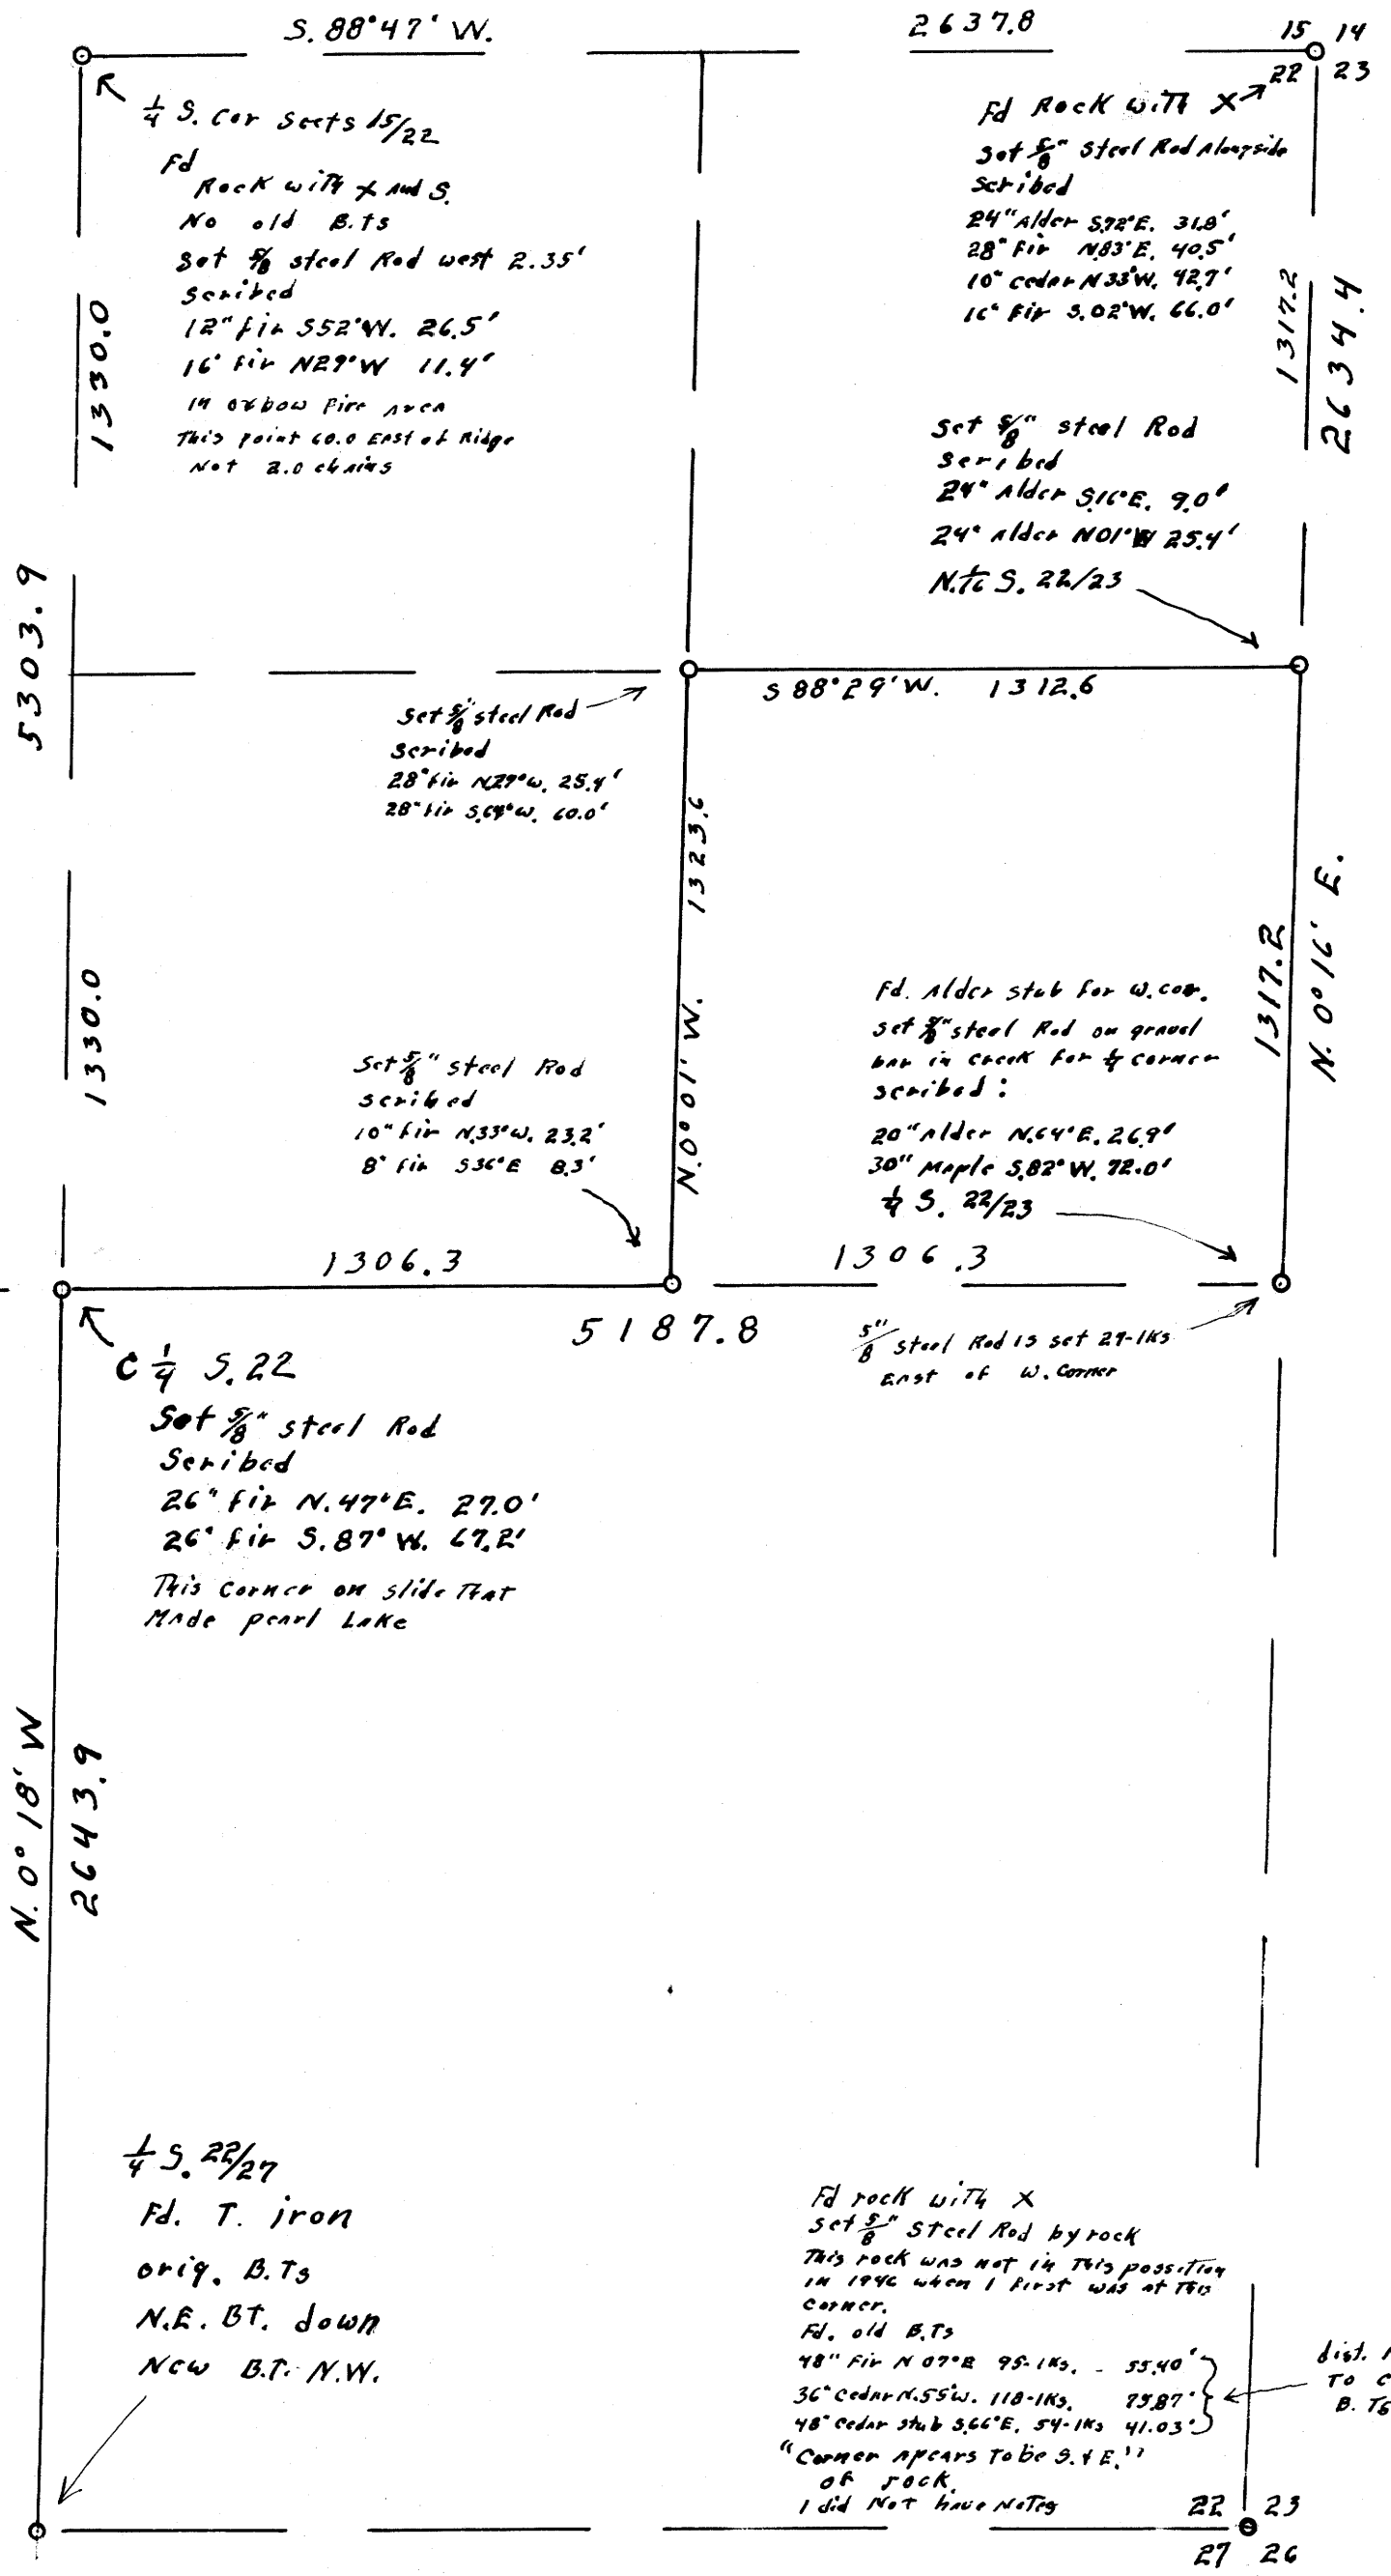 S. 88°47' W.
2637.8
15 14
22 23
1/4 S. Cor Sects 15/22
Fd
Rock with X and S.
No old B.Ts
Set 5/8 steel Rod west 2.35'
Scribed
12" fir S52°W. 26.5'
16" fir N29°W 11.4'
in oxbow Fire Area
This point 60.0 East of Ridge
Not 2.0 chains
Fd Rock with X
Set 5/8" Steel Rod Alongside
Scribed
24" Alder S72°E. 31.8'
28" Fir N83°E. 40.5'
10" cedar N33°W. 42.7'
16" Fir S.02°W. 66.0'
1330.0
1317.2
2634.4
Set 5/8" steel Rod
Scribed
24" Alder S.16°E. 9.0'
24" Alder N01° 25.4'
N.1/16 S. 22/23
5303.9
S 88°29' W. 1312.6
Set 5/8" steel Rod
Scribed
28" fir N.29°W. 25.4'
28" fir S.64°W. 60.0'
1323.6
N.0°01' W.
1317.2
N. 0°16' E.
1330.0
Fd. Alder stub for W. cor.
Set 5/8" steel Rod on gravel
bar in creek for 1/4 corner
scribed:
20" Alder N.64°E. 26.9'
30" Maple S.82°W. 72.0'
1/4 S. 22/23
Set 5/8" steel Rod
scribed
10" fir N.33°W. 23.2'
8" fir S36°E 8.3'
1306.3
1306.3
5187.8
5/8" steel Rod is set 29-lks
East of W. Corner
C 1/4 S.22
Set 5/8" steel Rod
Scribed
26" fir N.47°E. 27.0'
26" fir S.87°W. 67.2'
This corner on slide That
Made pearl Lake
N. 0° 18' W
2643.9
1/4 S. 22/27
Fd. T. iron
orig. B.Ts
N.E. BT. down
New B.T. N.W.
Fd rock with X
set 5/8" Steel Rod by rock
This rock was not in This possition
in 1946 when I first was at this
corner.
Fd. old B.Ts
48" Fir N 07°E 95-lks. - 55.40'
36" Cedar N.55°W. 118-lks. 75.87'
48" Cedar stub S.66°E. 54-lks 41.03'
dist.
To
B. Ts
"Corner apears To be S.&E."
of rock.
I did Not have Notes
22 23
27 26